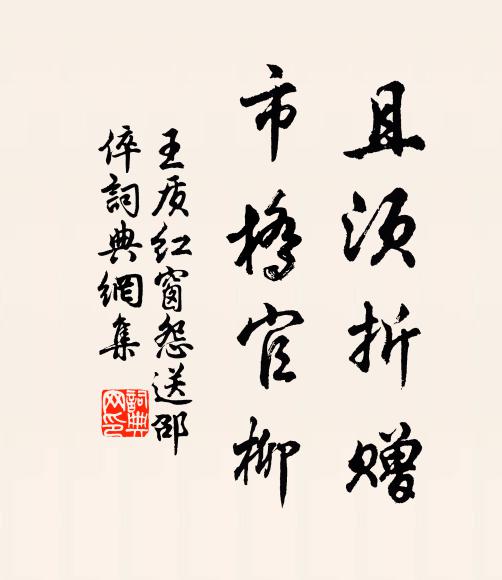 且须折赠
市橋官柳
王质红窗怨送邵
倅詞典網集
詞典
网印